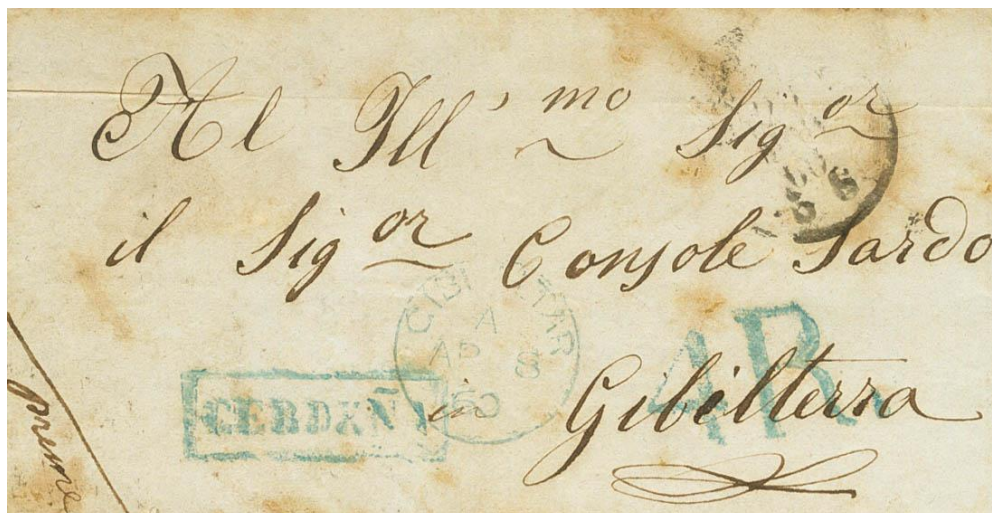 Al Ill'mo Sigor
il Sigor Console Sardo
in Gibilterra
preme
CERDEÑA
GIBRALTAR
A
AP 8
4R.